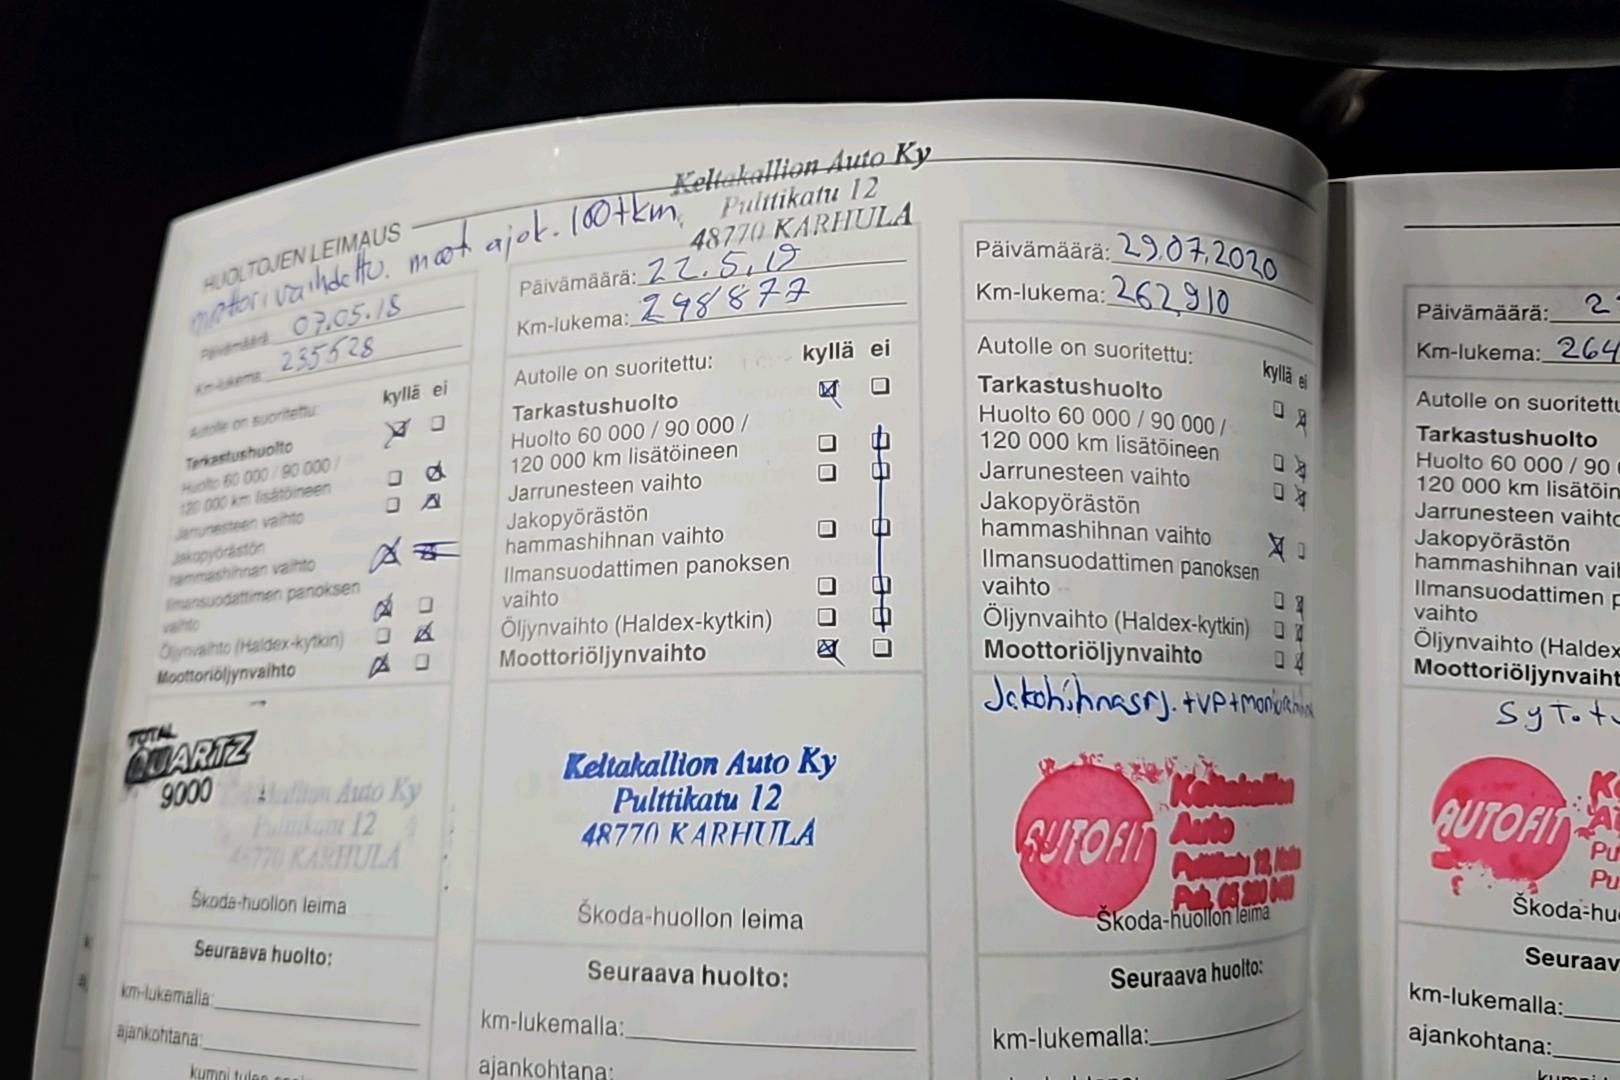 HUOLTOJEN LEIMAUS
Keltakallion Auto Ky
Pulttikatu 12
48770 KARHULA
moottori vaihdettu. moot ajot. 100tkm.
Päivämäärä: 07.05.18
Km-lukema: 235528
Autolle on suoritettu:
kyllä ei
Tarkastushuolto
Huolto 60 000 / 90 000 /
120 000 km lisätöineen
Jarrunesteen vaihto
Jakopyörästön
hammashihnan vaihto
Ilmansuodattimen panoksen
vaihto
Öljynvaihto (Haldex-kytkin)
Moottoriöljynvaihto
TOTAL
QUARTZ
9000
Keltakallion Auto Ky
Pulttikatu 12
48770 KARHULA
Škoda-huollon leima
Seuraava huolto:
km-lukemalla:
ajankohtana:
Päivämäärä: 22.5.19
Km-lukema: 248877
Autolle on suoritettu:
kyllä ei
Tarkastushuolto
Huolto 60 000 / 90 000 /
120 000 km lisätöineen
Jarrunesteen vaihto
Jakopyörästön
hammashihnan vaihto
Ilmansuodattimen panoksen
vaihto
Öljynvaihto (Haldex-kytkin)
Moottoriöljynvaihto
Keltakallion Auto Ky
Pulttikatu 12
48770 KARHULA
Škoda-huollon leima
Seuraava huolto:
km-lukemalla:
ajankohtana:
Päivämäärä: 29.07.2020
Km-lukema: 262910
Autolle on suoritettu:
kyllä ei
Tarkastushuolto
Huolto 60 000 / 90 000 /
120 000 km lisätöineen
Jarrunesteen vaihto
Jakopyörästön
hammashihnan vaihto
Ilmansuodattimen panoksen
vaihto
Öljynvaihto (Haldex-kytkin)
Moottoriöljynvaihto
Jakohihnasrj. +VP+
AUTOFIT
Keltakallion
Auto
Pulttikatu 12,
Puh. 05
Škoda-huollon leima
Seuraava huolto:
km-lukemalla:
Päivämäärä: 2
Km-lukema: 264
Autolle on suoritettu
Tarkastushuolto
Huolto 60 000 / 90
120 000 km lisätöin
Jarrunesteen vaihto
Jakopyörästön
hammashihnan vaih
Ilmansuodattimen p
vaihto
Öljynvaihto (Haldex
Moottoriöljynvaiht
AUTOFIT
Škoda-hu
Seuraav
km-lukemalla:
ajankohtana: